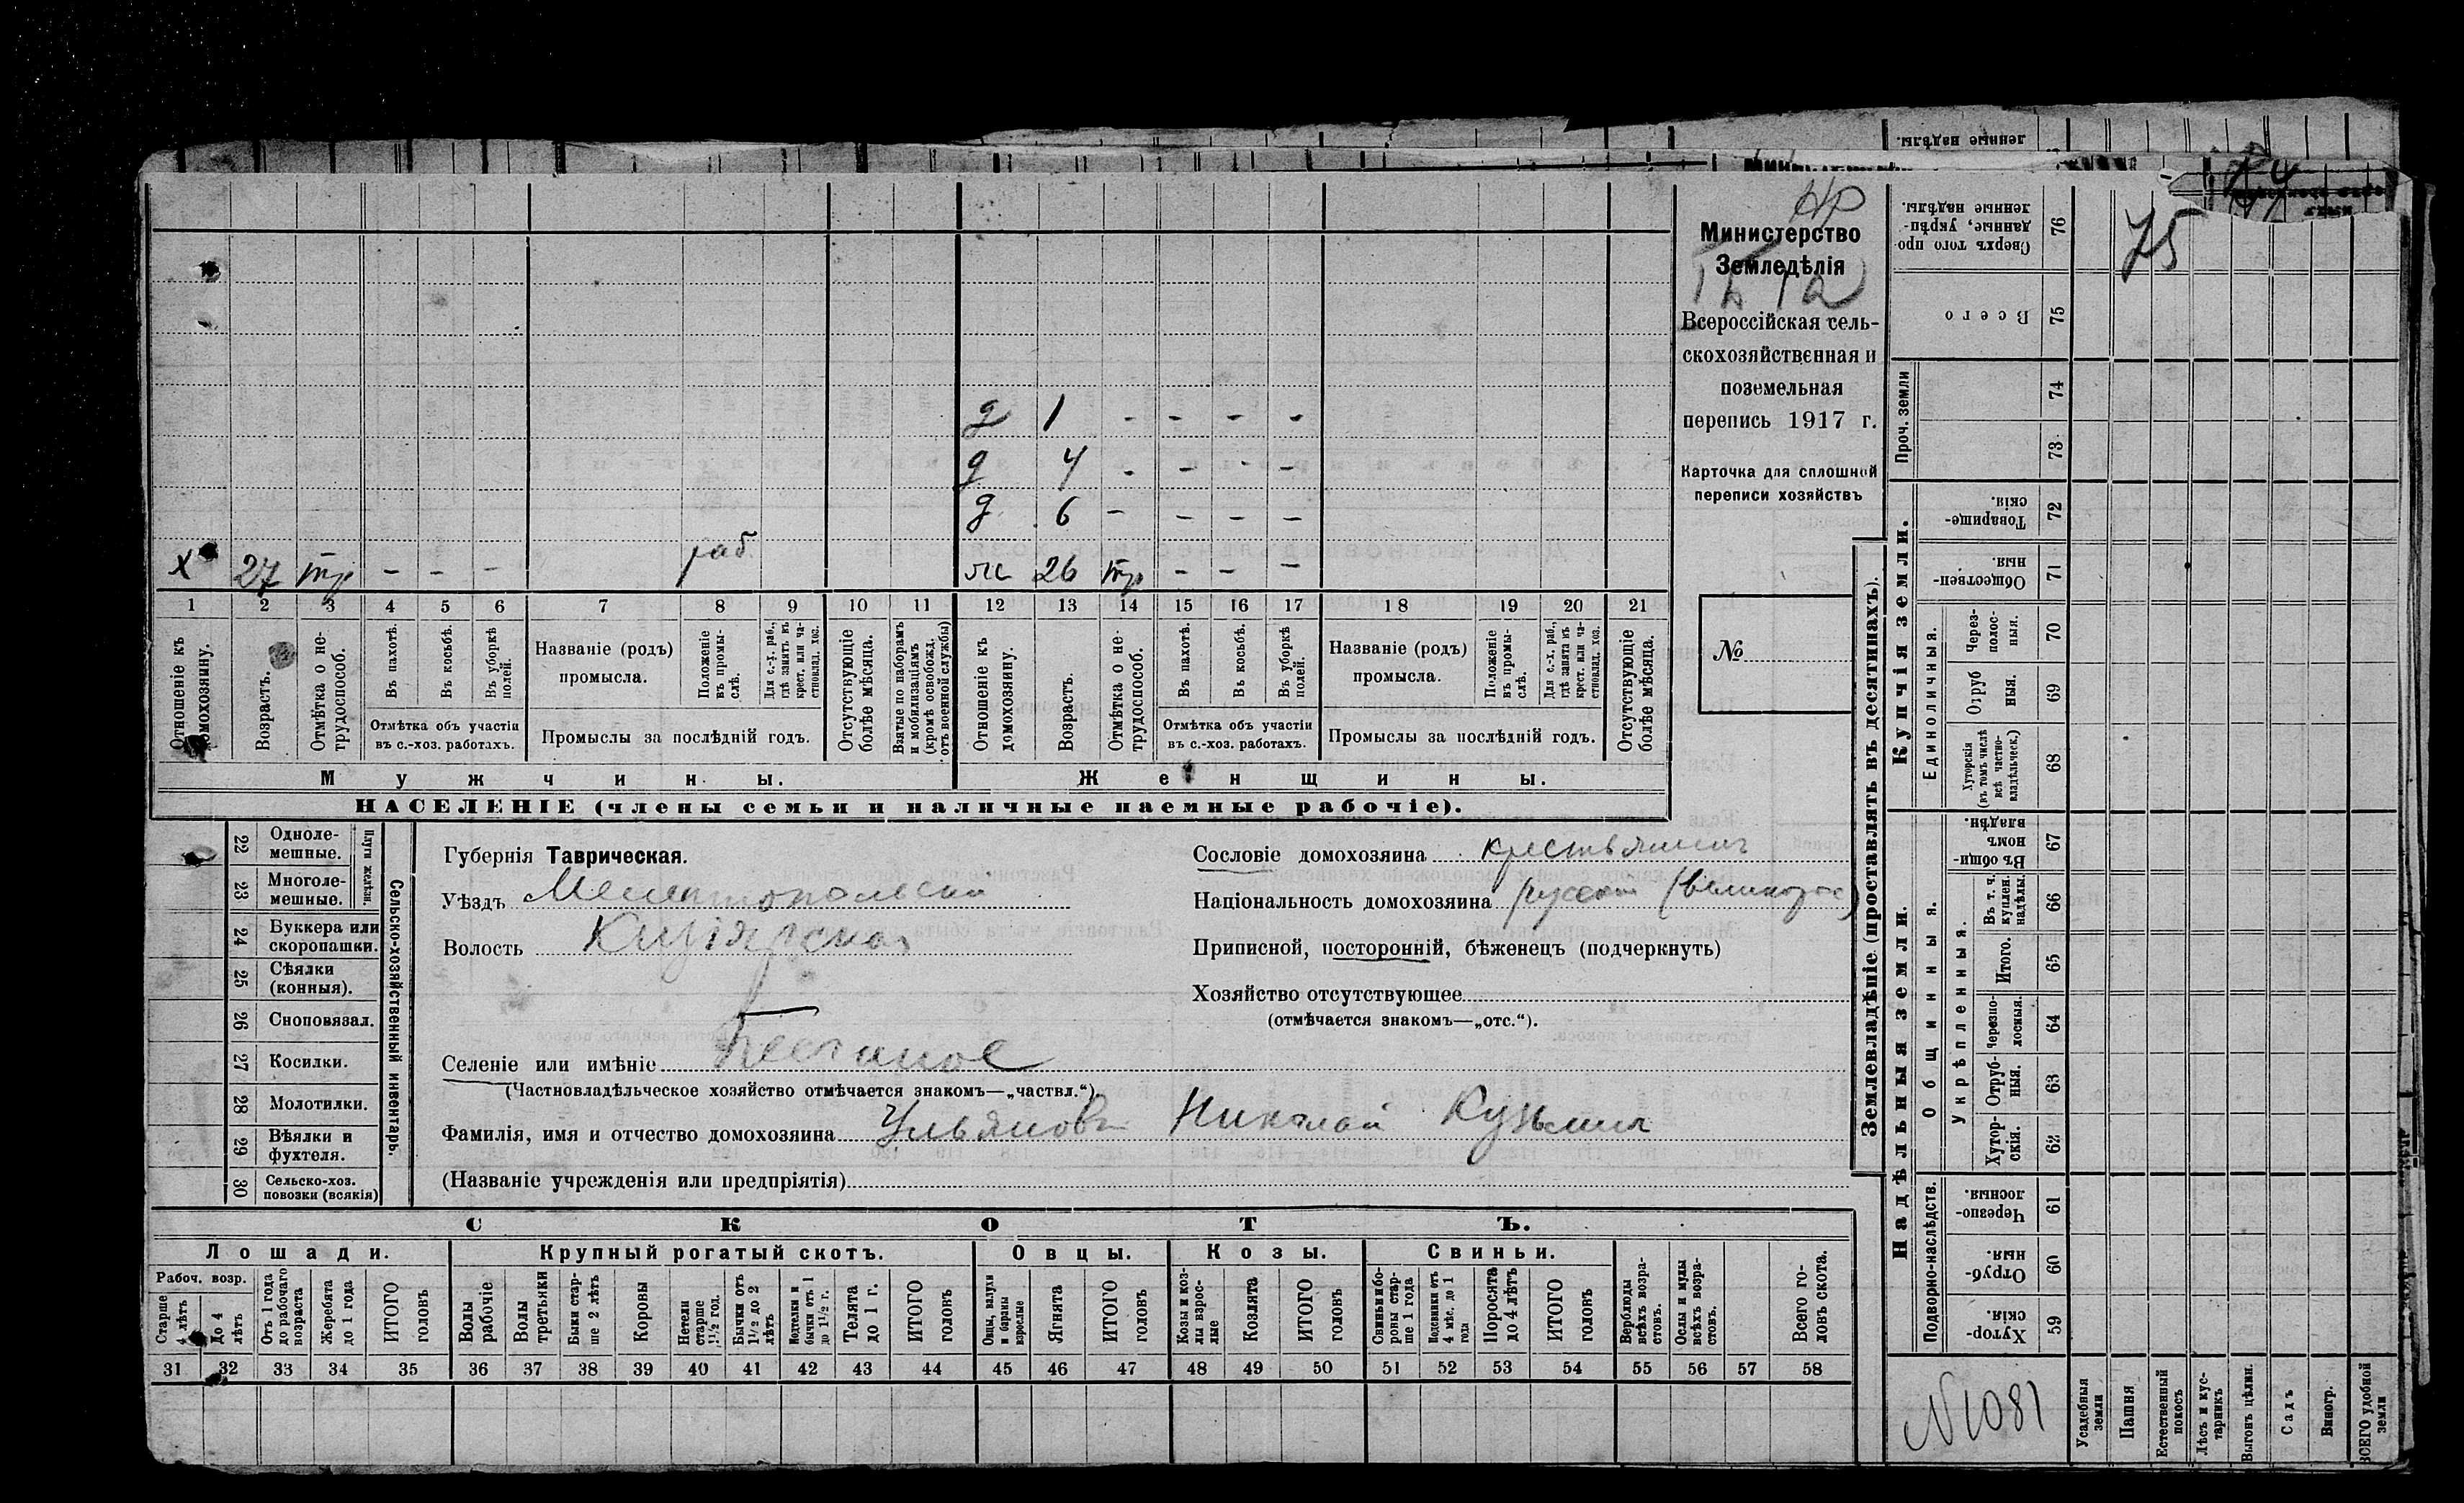 ленные надѣлы.
НР
Министерство
Земледѣлія
Всероссійская сель-
скохозяйственная и
поземельная
перепись 1917 г.
Карточка для сплошной
переписи хозяйствъ
№
д 1 - - - -
д 4 - - - -
д 6 - - - -
х 27 тр - - - раб ж 26 тр - - -
1 2 3 4 5 6 7 8 9 10 11 12 13 14 15 16 17 18 19 20 21
Отношеніе къ домохозяину.
Возрастъ.
Отмѣтка о не-
трудоспособ.
Въ пахотѣ.
Въ косьбѣ.
Въ уборкѣ
полей.
Отмѣтка объ участіи
въ с.-хоз. работахъ.
Названіе (родъ)
промысла.
Положеніе
въ промы-
слѣ.
Для с.-х. раб.,
гдѣ занятъ въ
крест. или ча-
стновлад. хоз.
Промыслы за послѣдній годъ.
Отсутствующіе
болѣе мѣсяца.
Взятые по наборамъ
и мобилизаціямъ
(кромѣ освобожд.
отъ военной службы)
Отношеніе къ
домохозяину.
Возрастъ.
Отмѣтка о не-
трудоспособ.
Въ пахотѣ.
Въ косьбѣ.
Въ уборкѣ
полей.
Отмѣтка объ участіи
въ с.-хоз. работахъ.
Названіе (родъ)
промысла.
Положеніе
въ промы-
слѣ.
Для с.-х. раб.,
гдѣ занята въ
крест. или ча-
стновлад. хоз.
Промыслы за послѣдній годъ.
Отсутствующіе
болѣе мѣсяца.
Мужчины.
Женщины.
НАСЕЛЕНІЕ (члены семьи и наличные наемные рабочіе).
22 Одноле-
мешные.
23 Многоле-
мешные.
Плуги желѣзн.
24 Буккера или
скоропашки.
25 Сѣялки
(конныя).
26 Сноповязал.
27 Косилки.
28 Молотилки.
29 Вѣялки и
фухтеля.
30 Сельско-хоз.
повозки (всякія)
Сельско-хозяйственный инвентарь.
Губернія Таврическая.
Уѣздъ Мелитопольскій
Волость
Селеніе или имѣніе
(Частновладѣльческое хозяйство отмѣчается знакомъ—„частвл.“)
Фамилія, имя и отчество домохозяина Ульяновъ Николай Кузьмичъ
(Названіе учрежденія или предпріятія)
Сословіе домохозяина крестьянинъ
Національность домохозяина русскій (великорос)
Приписной, посторонній, бѣженецъ (подчеркнуть)
Хозяйство отсутствующее
(отмѣчается знакомъ—„отс.“).
СКОТЪ.
Лошади. Крупный рогатый скотъ. Овцы. Козы. Свиньи.
Рабоч. возр.
Старше
4 лѣтъ
До 4
лѣтъ
Отъ 1 года
до рабочаго
возраста
Жеребята
до 1 года
ИТОГО
головъ
Волы
рабочіе
Волы
третьяки
Быки стар-
ше 2 лѣтъ
Коровы
Нетели
старше
1½ год.
Бычки отъ
1½ до 2
лѣтъ
Подтелки и
бычки отъ 1
до 1½ г.
Телята
до 1 г.
ИТОГО
головъ
Овцы, валухи
и бараны
взрослые
Ягнята
ИТОГО
головъ
Козы и коз-
лы взрос-
лые
Козлята
ИТОГО
головъ
Свиньи и бо-
ровы стар-
ше 1 года
Подсвинки отъ
4 мѣс. до 1
года
Поросята
до 4 лѣтъ
ИТОГО
головъ
Верблюды
всѣхъ возра-
стовъ.
Ослы и мулы
всѣхъ возра-
стовъ.
Всего го-
ловъ скота.
31 32 33 34 35 36 37 38 39 40 41 42 43 44 45 46 47 48 49 50 51 52 53 54 55 56 57 58
Землевладѣніе (проставлять въ десятинахъ).
Купчія земли.
Надѣльныя земли.
75
Сверхъ того про
данные, укрѣп-
ленные надѣлы.
76
Всего
75
Проч. земли
74
73
Товарище-
скія.
72
Обществен-
ныя.
71
Единоличныя.
Через-
полос-
ныя.
70
Отруб
ныя.
69
Хуторскія
(въ томъ числѣ
всѣ частно-
владѣльческ.)
68
Въ общи-
номъ
владѣн.
67
Общинныя.
Укрѣпленныя.
Въ т. ч.
куплен.
надѣлы.
66
Итого.
65
Черезпо-
лосныя.
64
Отруб-
ныя.
63
Хутор-
скія.
62
Подворно-наслѣдств.
Черезпо-
лосныя.
61
Отруб-
ныя.
60
Хутор-
скія.
59
N1081
Усадебныя
земли
Пашня
Естественный
покосъ
Лѣсъ и кус-
тарникъ
Выгонъ цѣлин.
Садъ
Виногр.
ВСЕГО удобной
земли